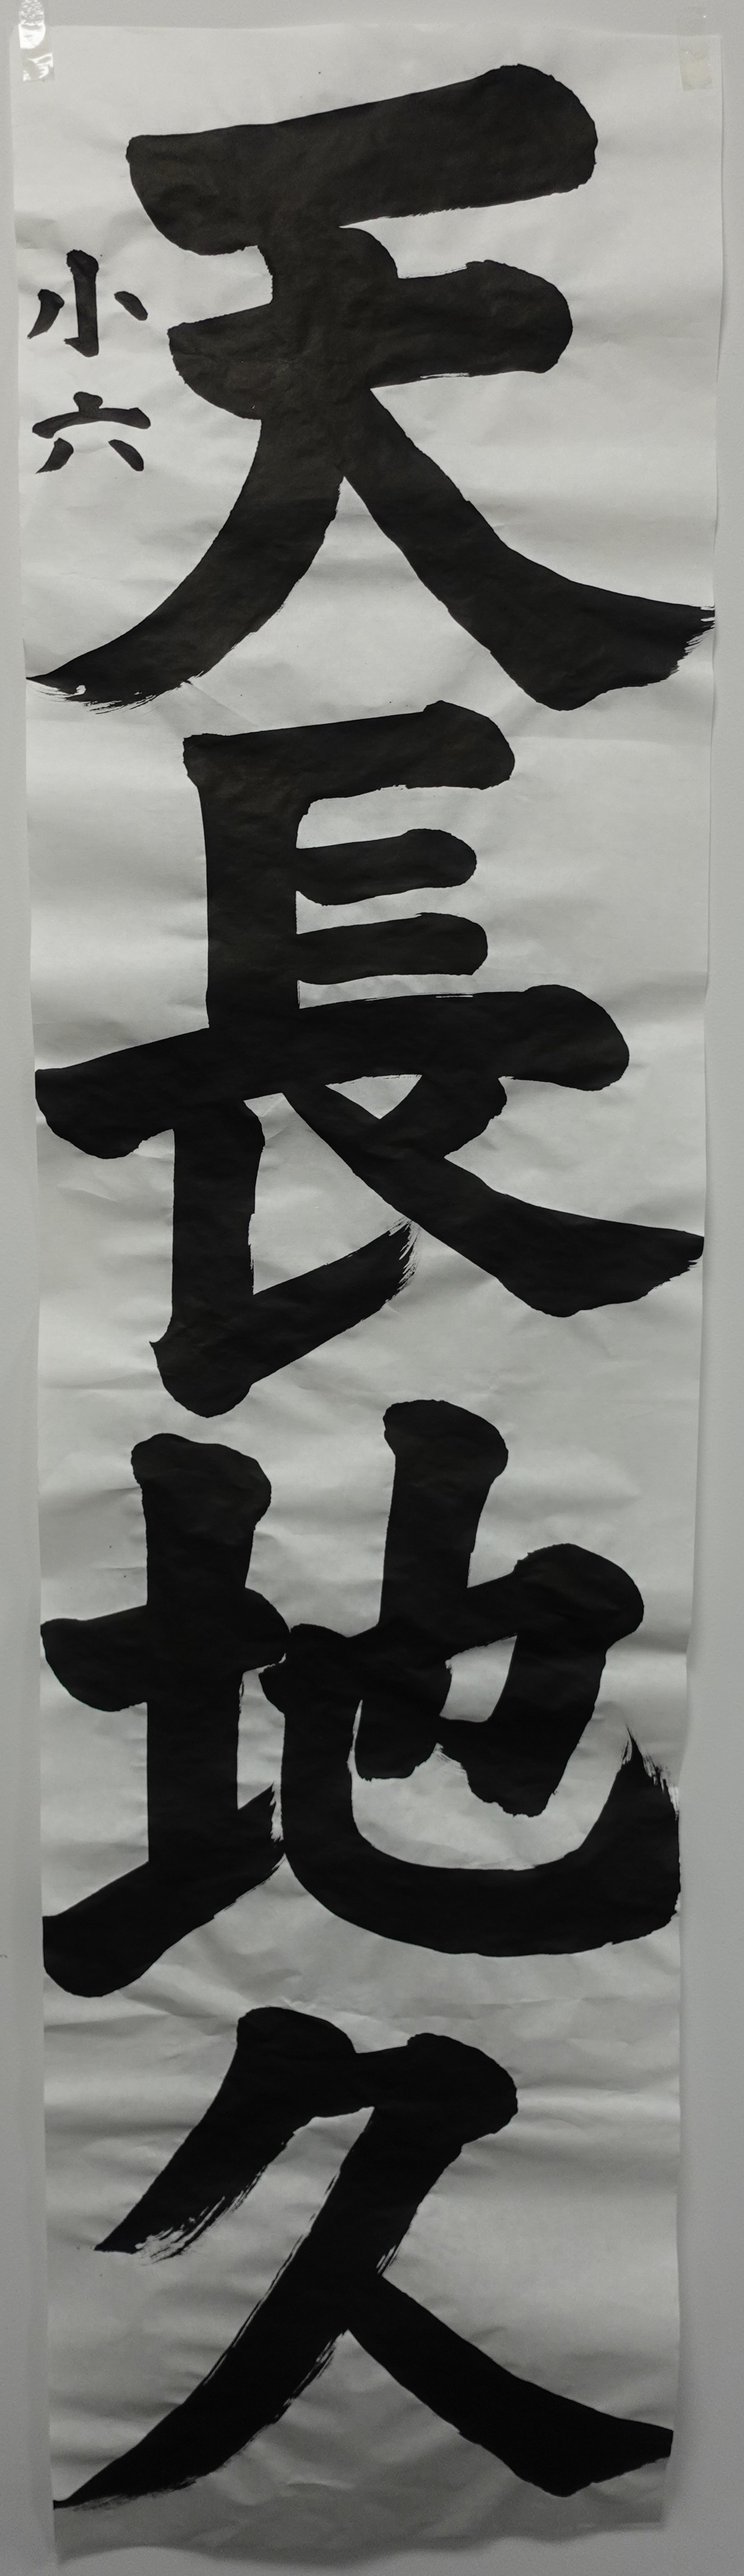 天長地久
小六